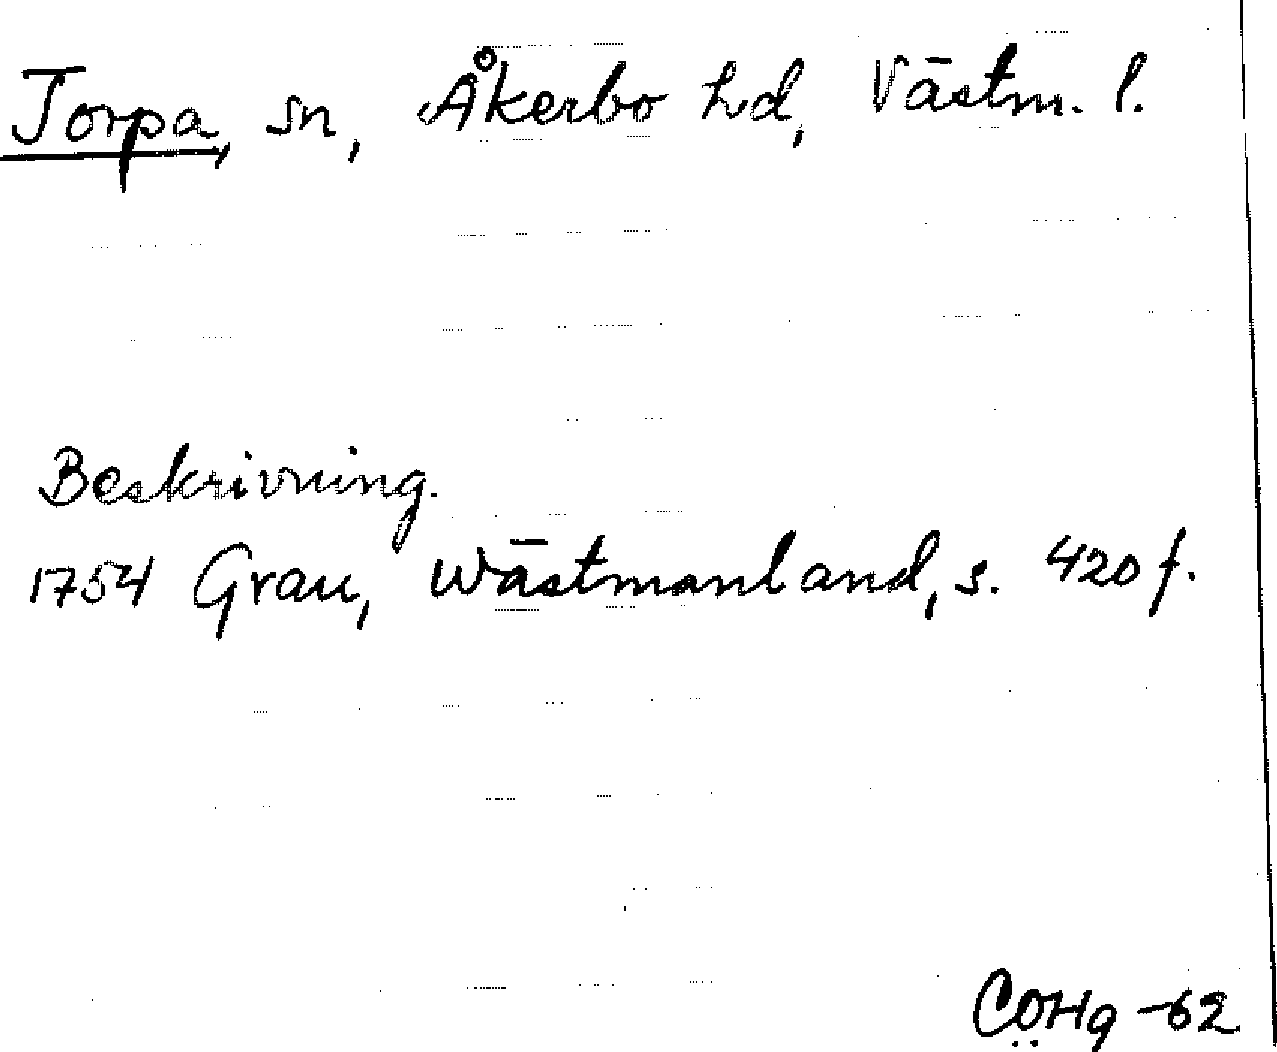 Torpa, sn, Åkerbo hd, Västm. l.
Beskrivning.
1754 Grau, Wästmanland, s. 420 f.
CÖHg -62